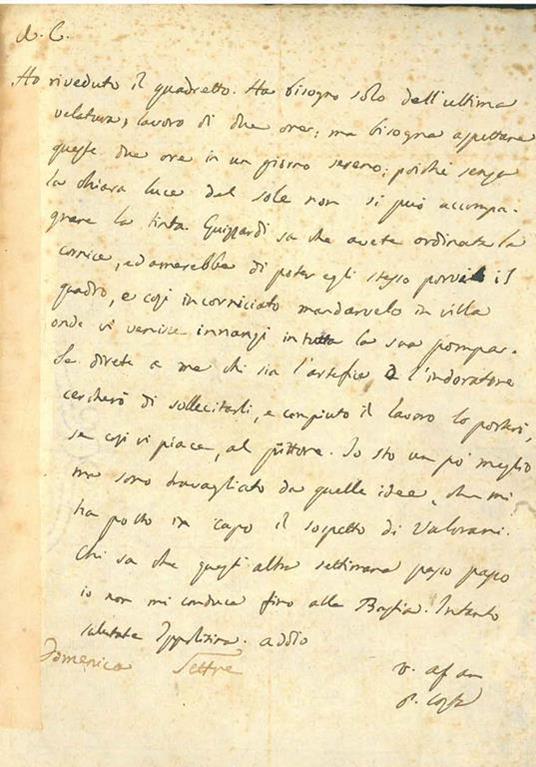 A. C.
Ho riveduto il quadretto. Ha bisogno solo dell'ultima
velatura, lavoro di due ore; ma bisogna aspettare
queste due ore in un giorno sereno; poichè senza
la chiara luce del sole non si può accompa-
gnare la tinta. Guizzardi sa che avete ordinata la
cornice, ed amerebbe di poter egli stesso porvi il
quadro, e così incorniciato mandarvelo in villa
onde vi venisse innanzi in tutta la sua pompa.
Se direte a me chi sia l'artefice e l'indoratore
cercherò di sollecitarli, e compiuto il lavoro lo porterò,
se così vi piace, al pittore. Io sto un pò meglio
ma sono travagliato da quelle idee, che mi
ha posto in capo il sospetto di Valorani.
Chi sa che quest'altra settimana passo passo
io non mi conduca fino alla Bastia. Intanto
salutate Ippolita. addio
Domenica Settre
v. aff. am
P. Costa